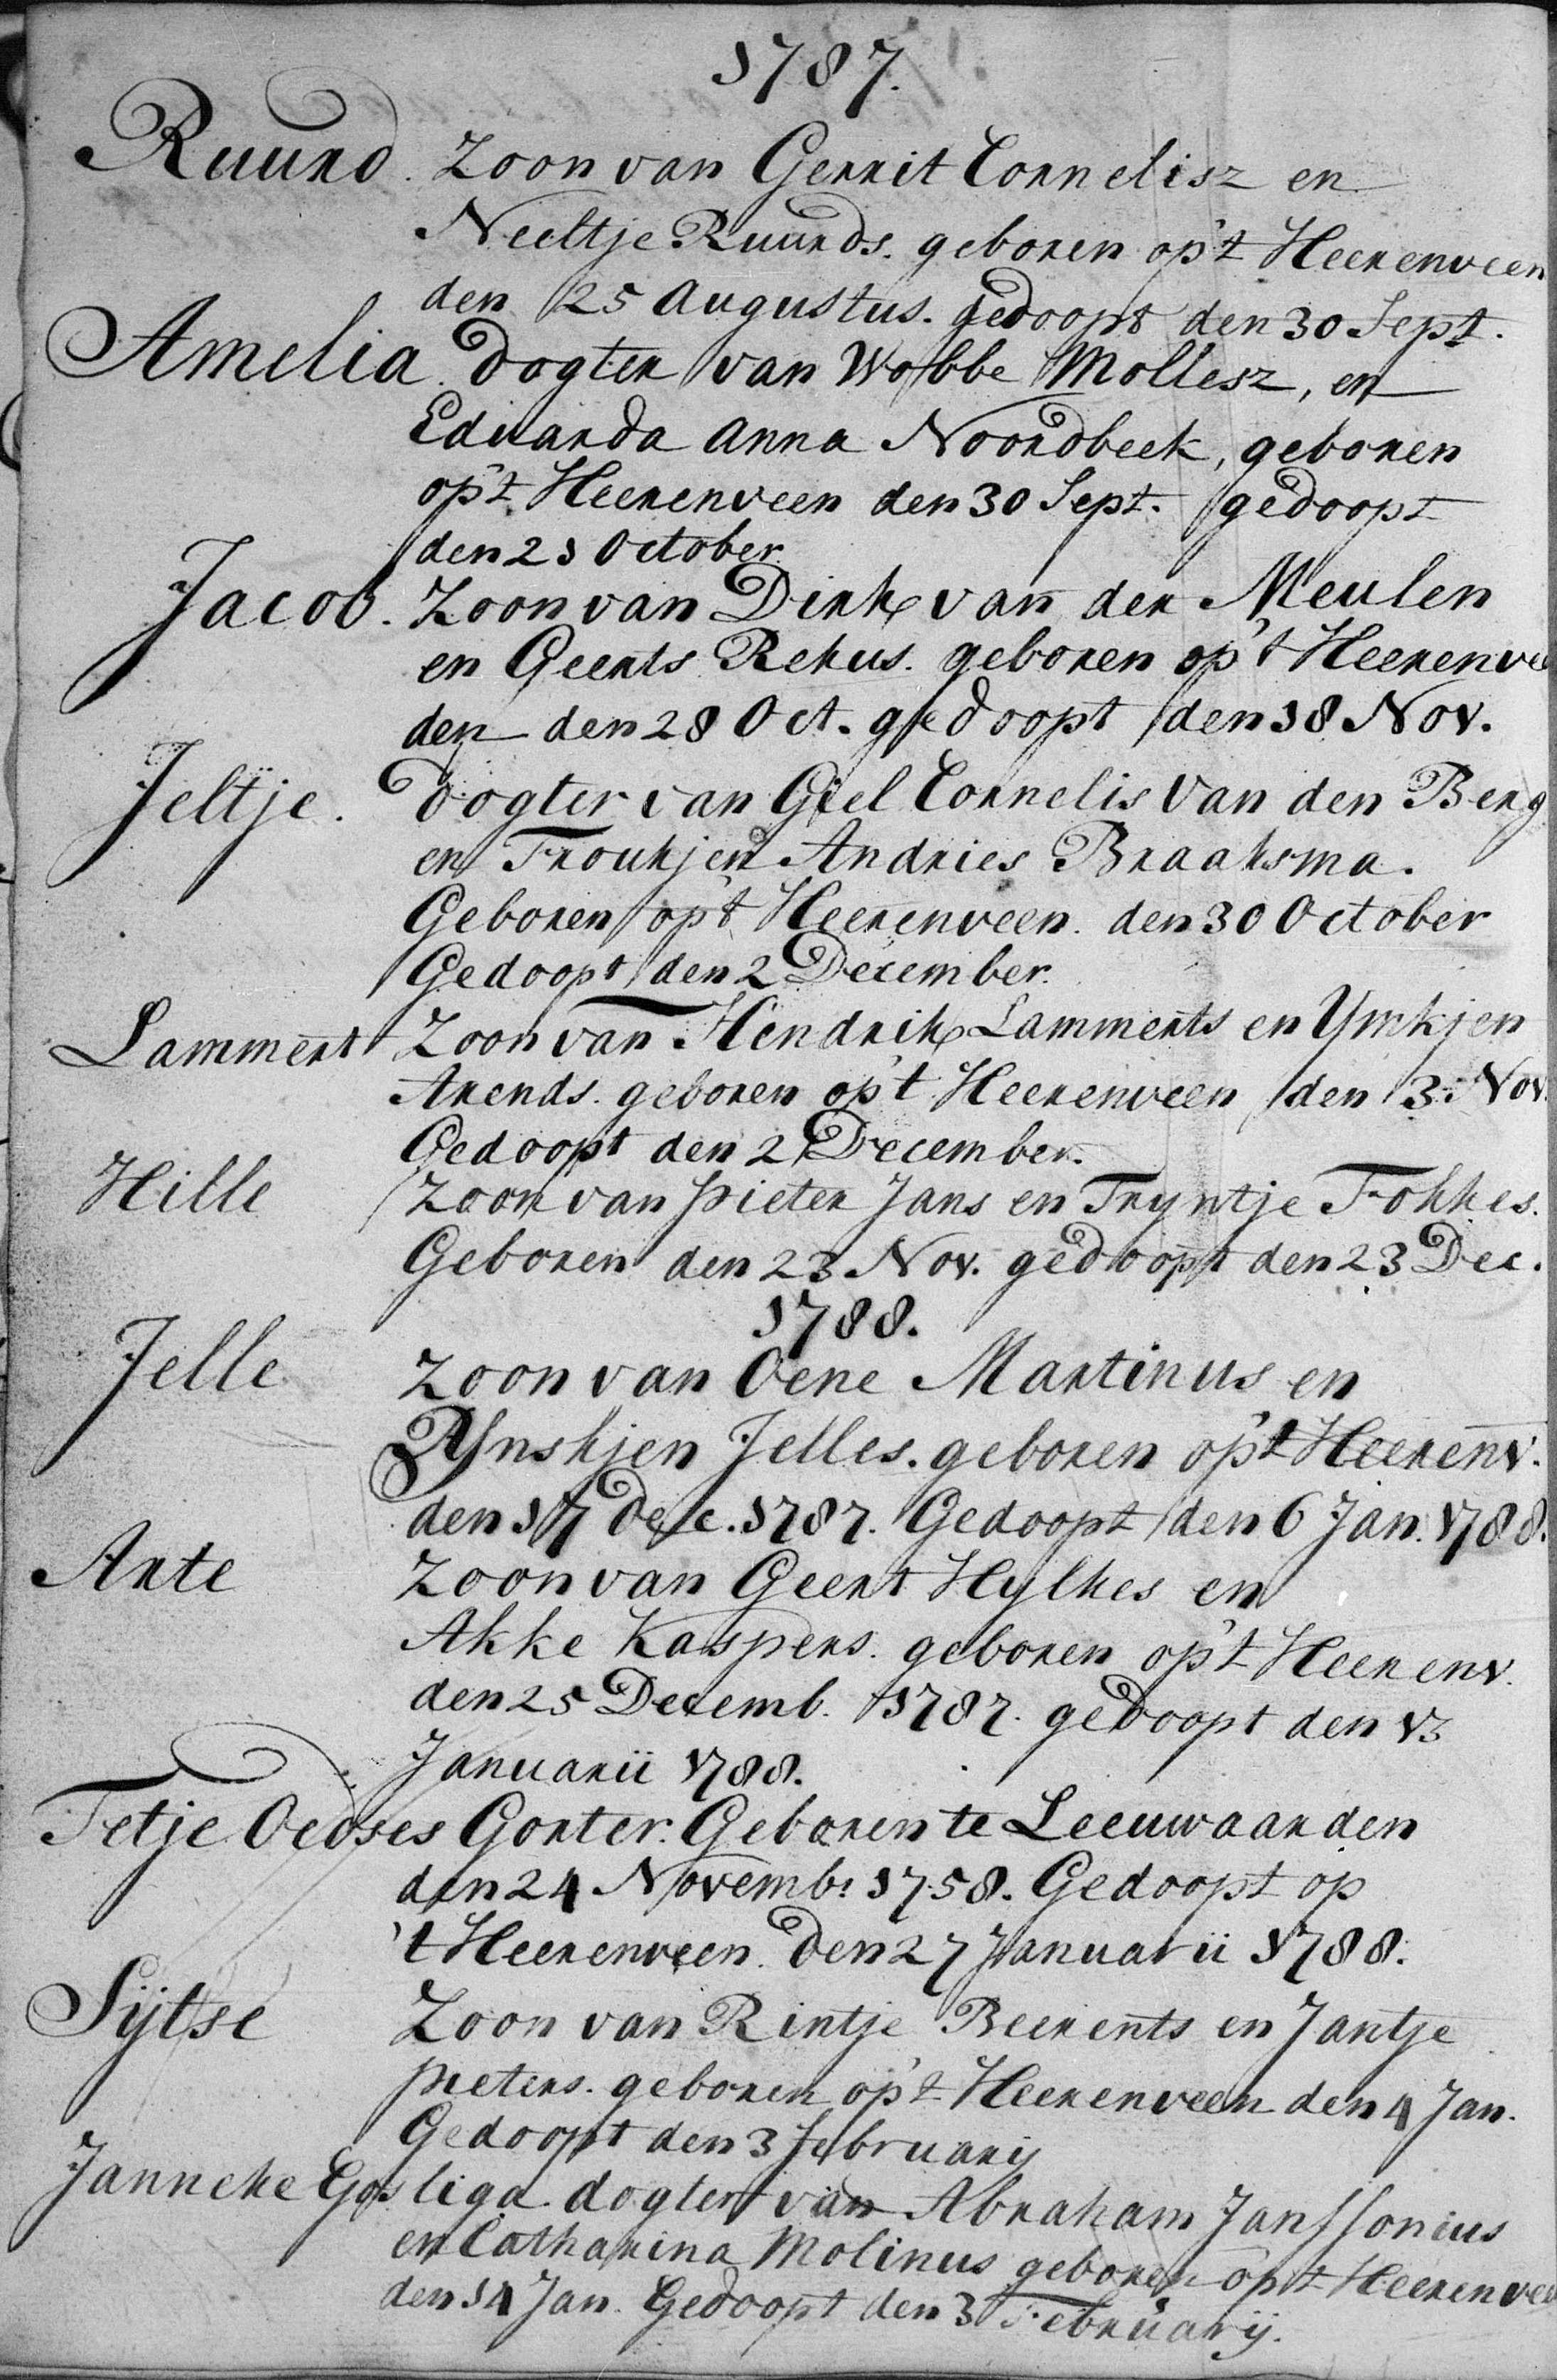 1787.
Ruurd. Zoon van Gerrit Cornelisz en
Neeltje Ruurds. geboren op't Heerenveen
den 25 Augustus. gedoopt den 30 Sept.
Amelia. dogter van Wobbe Mollesz, en
Eduarda Anna Noordbeek, geboren
op't Heerenveen den 30 Sept. gedoopt
den 21 October.
Jacob. Zoon van Dirk van der Meulen
en Geerts Rekus. geboren op't Heerenvee
den den 28 Oct. gedoopt den 18 Nov.
Jeltje. dogter van Giel Cornelis van den Berg
en Froukjen Andries Braaksma.
Geboren op't Heerenveen. den 30 October
Gedoopt den 2 December.
Lammert Zoon van Hendrik Lammerts en Ymkjen
Arends. geboren op't Heerenveen den 3: Nov.
Gedoopt den 2 December.
Hille Zoon van pieter Jans en Tryntje Fokkes.
Geboren den 23 Nov. gedoopt den 23 Dec.
1788.
Jelle Zoon van Oene Martinus en
Rynskjen Jelles. geboren op't Heerenv.
den 17 dec. 1787. Gedoopt den 6 Jan. 1788.
Arte Zoon van Geert Hylkes en
Akke Kaspers. geboren op't Heerenv.
den 25 Decemb. 1787. gedoopt den 13
Januarii 1788.
Tetje Oedses Gorter. Geboren te Leeuwaarden
den 24 Novemb: 1758. Gedoopt op
't Heerenveen. den 27 Januarii 1788.
Sijtse Zoon van Rintje Beerents en Jantje
pieters. geboren op't Heerenveen den 4 Jan.
Gedoopt den 3 februarij
Janneke Gosliga dogter van Abraham Janssonius
en Catharina Molinus geboren op't Heerenvee
den 14 Jan. Gedoopt den 3 Februarij.